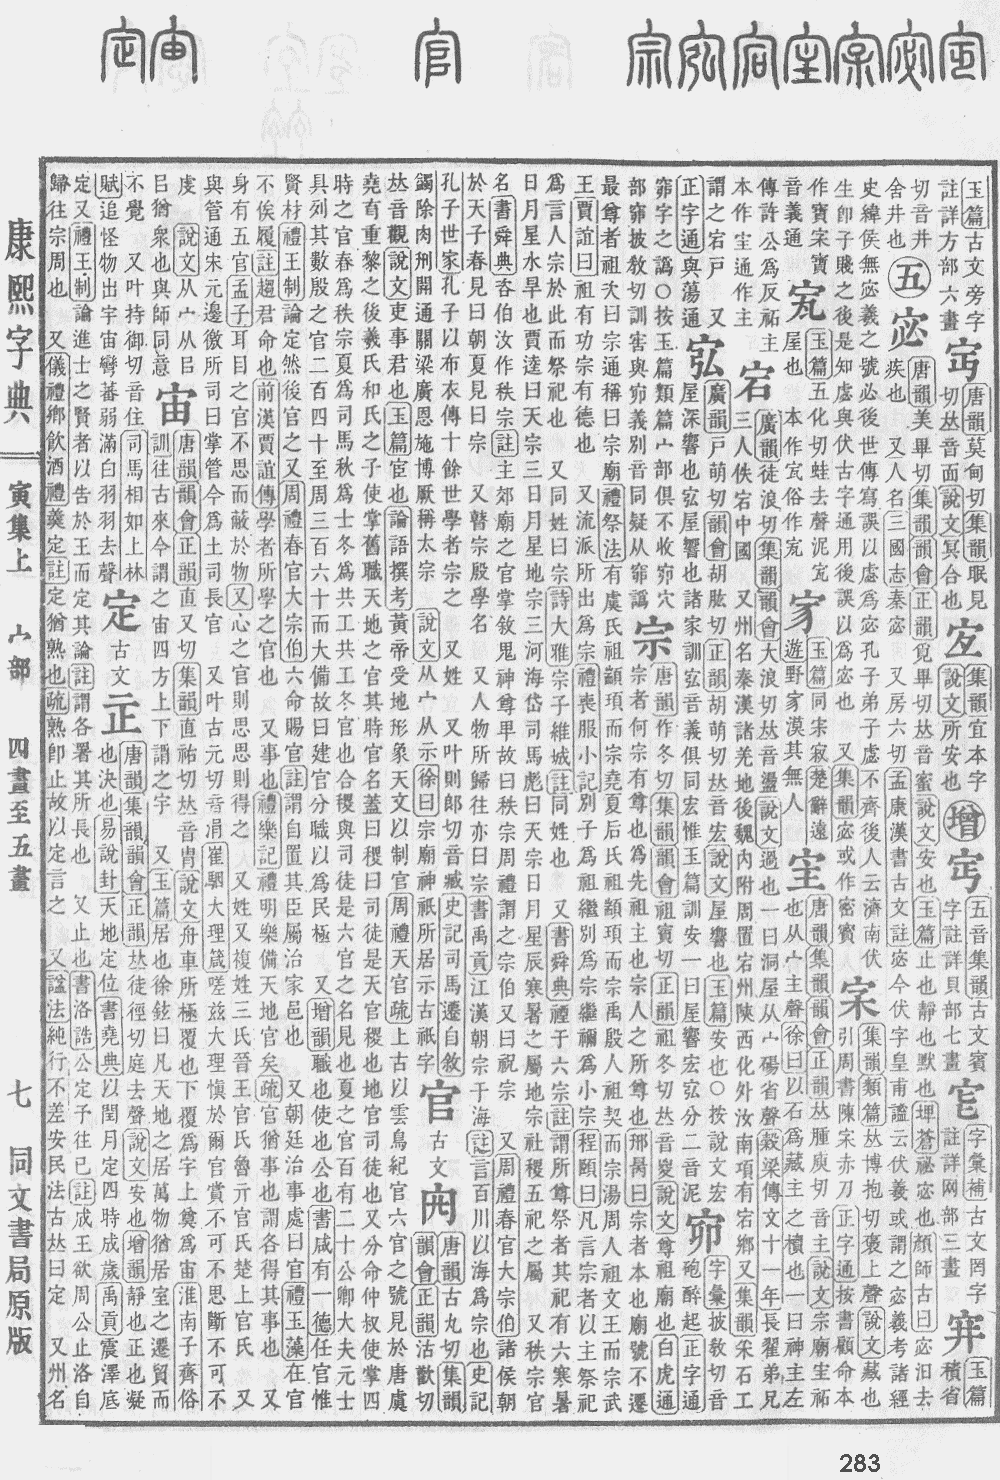 玉篇古文旁字
註詳方部六畫
唐韻莫甸切集韻眠見
切𠀤音面說文冥合也
集韻宜本字
說文所安也
增
五音集韻古文賓
字註詳貝部七畫
字彙補古文罔字
註詳网部三畫
玉篇
積省
切音井
舍井也
五
宓
唐韻美畢切集韻韻會正韻覓畢切𠀤音蜜說文安也玉篇止也靜也默也埤蒼祕宓也顏師古曰宓汨去
疾也 又人名三國志秦宓 又房六切孟康漢書古文註宓今伏字皇甫謐云伏羲或謂之宓羲考諸經
史緯侯無宓羲之號必後世傳寫誤以虙爲宓孔子弟子虙不齊後人云濟南伏
生卽子賤之後是知虙與伏古字通用後誤以爲宓也 又集韻宓或作密
宲
集韻類篇𠀤博抱切褒上聲說文藏也
引周書陳宲赤刀 正字通按書顧命本
作寶宲寶
音義通
玉篇五化切蛙去聲泥
屋也 本作 俗作
玉篇同宋寂楚辭遠
遊野 漠其無人
宔
唐韻集韻韻會正韻𠀤腫庾切音主說文宗廟宔祏
也从宀主聲徐曰以石爲藏主之櫝也一曰神主左
傳許公爲反祏主
本作宔通作主
宕
廣韻徒浪切集韻韻會大浪切𠀤音盪說文過也一曰洞屋从宀碭省聲穀梁傳文十一年長翟弟兄
三人佚宕中國 又州名秦漢諸羌地後魏內附周置宕州陝西化外汝南項有宕鄉又集韻宲石工
謂之宕戸 又
正字通與蕩通
宖
廣韻戸萌切韻會胡肱切正韻胡萌切𠀤音宏說文屋響也玉篇安也○按說文宏
屋深響也宖屋響也諸家訓宖音義俱同宏惟玉篇訓安一曰屋響宏宖分二音泥
窌
字彙披敎切音
砲醉起正字通
窌字之譌○按玉篇類篇宀部俱不收窌穴
部窌披敎切訓害與窌義別音同疑从窌譌
宗
唐韻作冬切集韻韻會祖賓切正韻祖冬切𠀤音𡖉說文尊祖廟也白虎通
宗者何宗有尊也爲先祖主也宗人之所尊也邢昺曰宗者本也廟號不遷
最尊者祖次曰宗通稱曰宗廟禮祭法有虞氏祖顓頊而宗堯夏后氏祖顓頊而宗禹殷人祖契而宗湯周人祖文王而宗武
王賈誼曰祖有功宗有德也 又流派所出爲宗禮喪服小記別子爲祖繼別爲宗繼禰爲小宗程頤曰凡言宗者以主祭祀
爲言人宗於此而祭祀也 又同姓曰宗詩大雅宗子維城註同姓也 又書舜典禋于六宗註謂所尊祭者其祀有六寒暑
日月星水旱也賈逵曰天宗三日月星地宗三河海岱司馬彪曰天宗日月星辰寒暑之屬地宗社稷五祀之屬 又秩宗官
名書舜典咨伯汝作秩宗註主郊廟之官掌敘鬼神尊𤰞故曰秩宗周禮謂之宗伯又曰祝宗 又周禮春官大宗伯諸侯朝
於天子春見曰朝夏見曰宗 又瞽宗殷學名 又人物所歸往亦曰宗書禹貢江漢朝宗于海註言百川以海爲宗也史記
孔子世家孔子以布衣傳十餘世學者宗之 又姓 又叶則郞切音臧史記司馬遷自敘
蠲除肉刑開通關梁廣恩施博厥稱太宗 說文从宀从示徐曰宗廟神祇所居示古祇字
官
古文

唐韻古丸切集韻
韻會正韻沽歡切
𠀤音觀說文吏事君也玉篇官也論語撰考黃帝受地形象天文以制官周禮天官疏上古以雲鳥紀官六官之號見於唐虞
堯育重黎之後羲氏和氏之子使掌舊職天地之官其時官名蓋曰稷曰司徒是天官稷也地官司徒也又分命仲叔使掌四
時之官春爲秩宗夏爲司馬秋爲士冬爲共工共工冬官也合稷與司徒是六官之名見也夏之官百有二十公卿大夫元士
具列其數殷之官二百四十至周三百六十而大備故曰建官分職以爲民極 又增韻職也使也公也書咸有一德任官惟
賢材禮王制論定然後官之又周禮春官大宗伯六命賜官註謂自置其臣屬治家邑也 又朝廷治事處曰官禮玉藻在官
不俟屨註趨君命也前漢賈誼傳學者所學之官也 又事也禮樂記禮明樂備天地官矣疏官猶事也謂各得其事也 又
身有五官孟子耳目之官不思而蔽於物又心之官則思思則得之 又姓又複姓三氏晉王官氏魯亓官氏楚上官氏 又
與管通宋元邊徼所司曰掌管今爲土司長官 又叶古元切音涓崔駰大理箴嗟兹大理愼於爾官賞不可不思斷不可不
虔 說文从宀从𠂤
𠂤猶衆也與師同意
宙
唐韻韻會正韻直又切集韻直祐切𠀤音胄說文舟車所極覆也下覆爲宇上奠爲宙淮南子齊俗
訓往古來今謂之宙四方上下謂之宇 又玉篇居也徐鉉曰凡天地之居萬物猶居室之遷貿而
不覺 又叶持御切音住司馬相如上林
賦追怪物出宇宙彎蕃弱滿白羽羽去聲
定
古文
正
唐韻集韻韻會正韻𠀤徒徑切庭去聲說文安也增韻靜也正也凝
也決也易說卦天地定位書堯典以閏月定四時成歲禹貢震澤底
定又禮王制論進士之賢者以告於王而定其論註謂各署其所長也 又止也書洛誥公定予往已註成王欲周公止洛自
歸往宗周也 又儀禮鄉飮酒禮羹定註定猶熟也疏熟卽止故以定言之 又諡法純行不差安民法古𠀤曰定 又州名
康熙字典
寅集上 宀部
四畫至五畫
七
同文書局原版
283